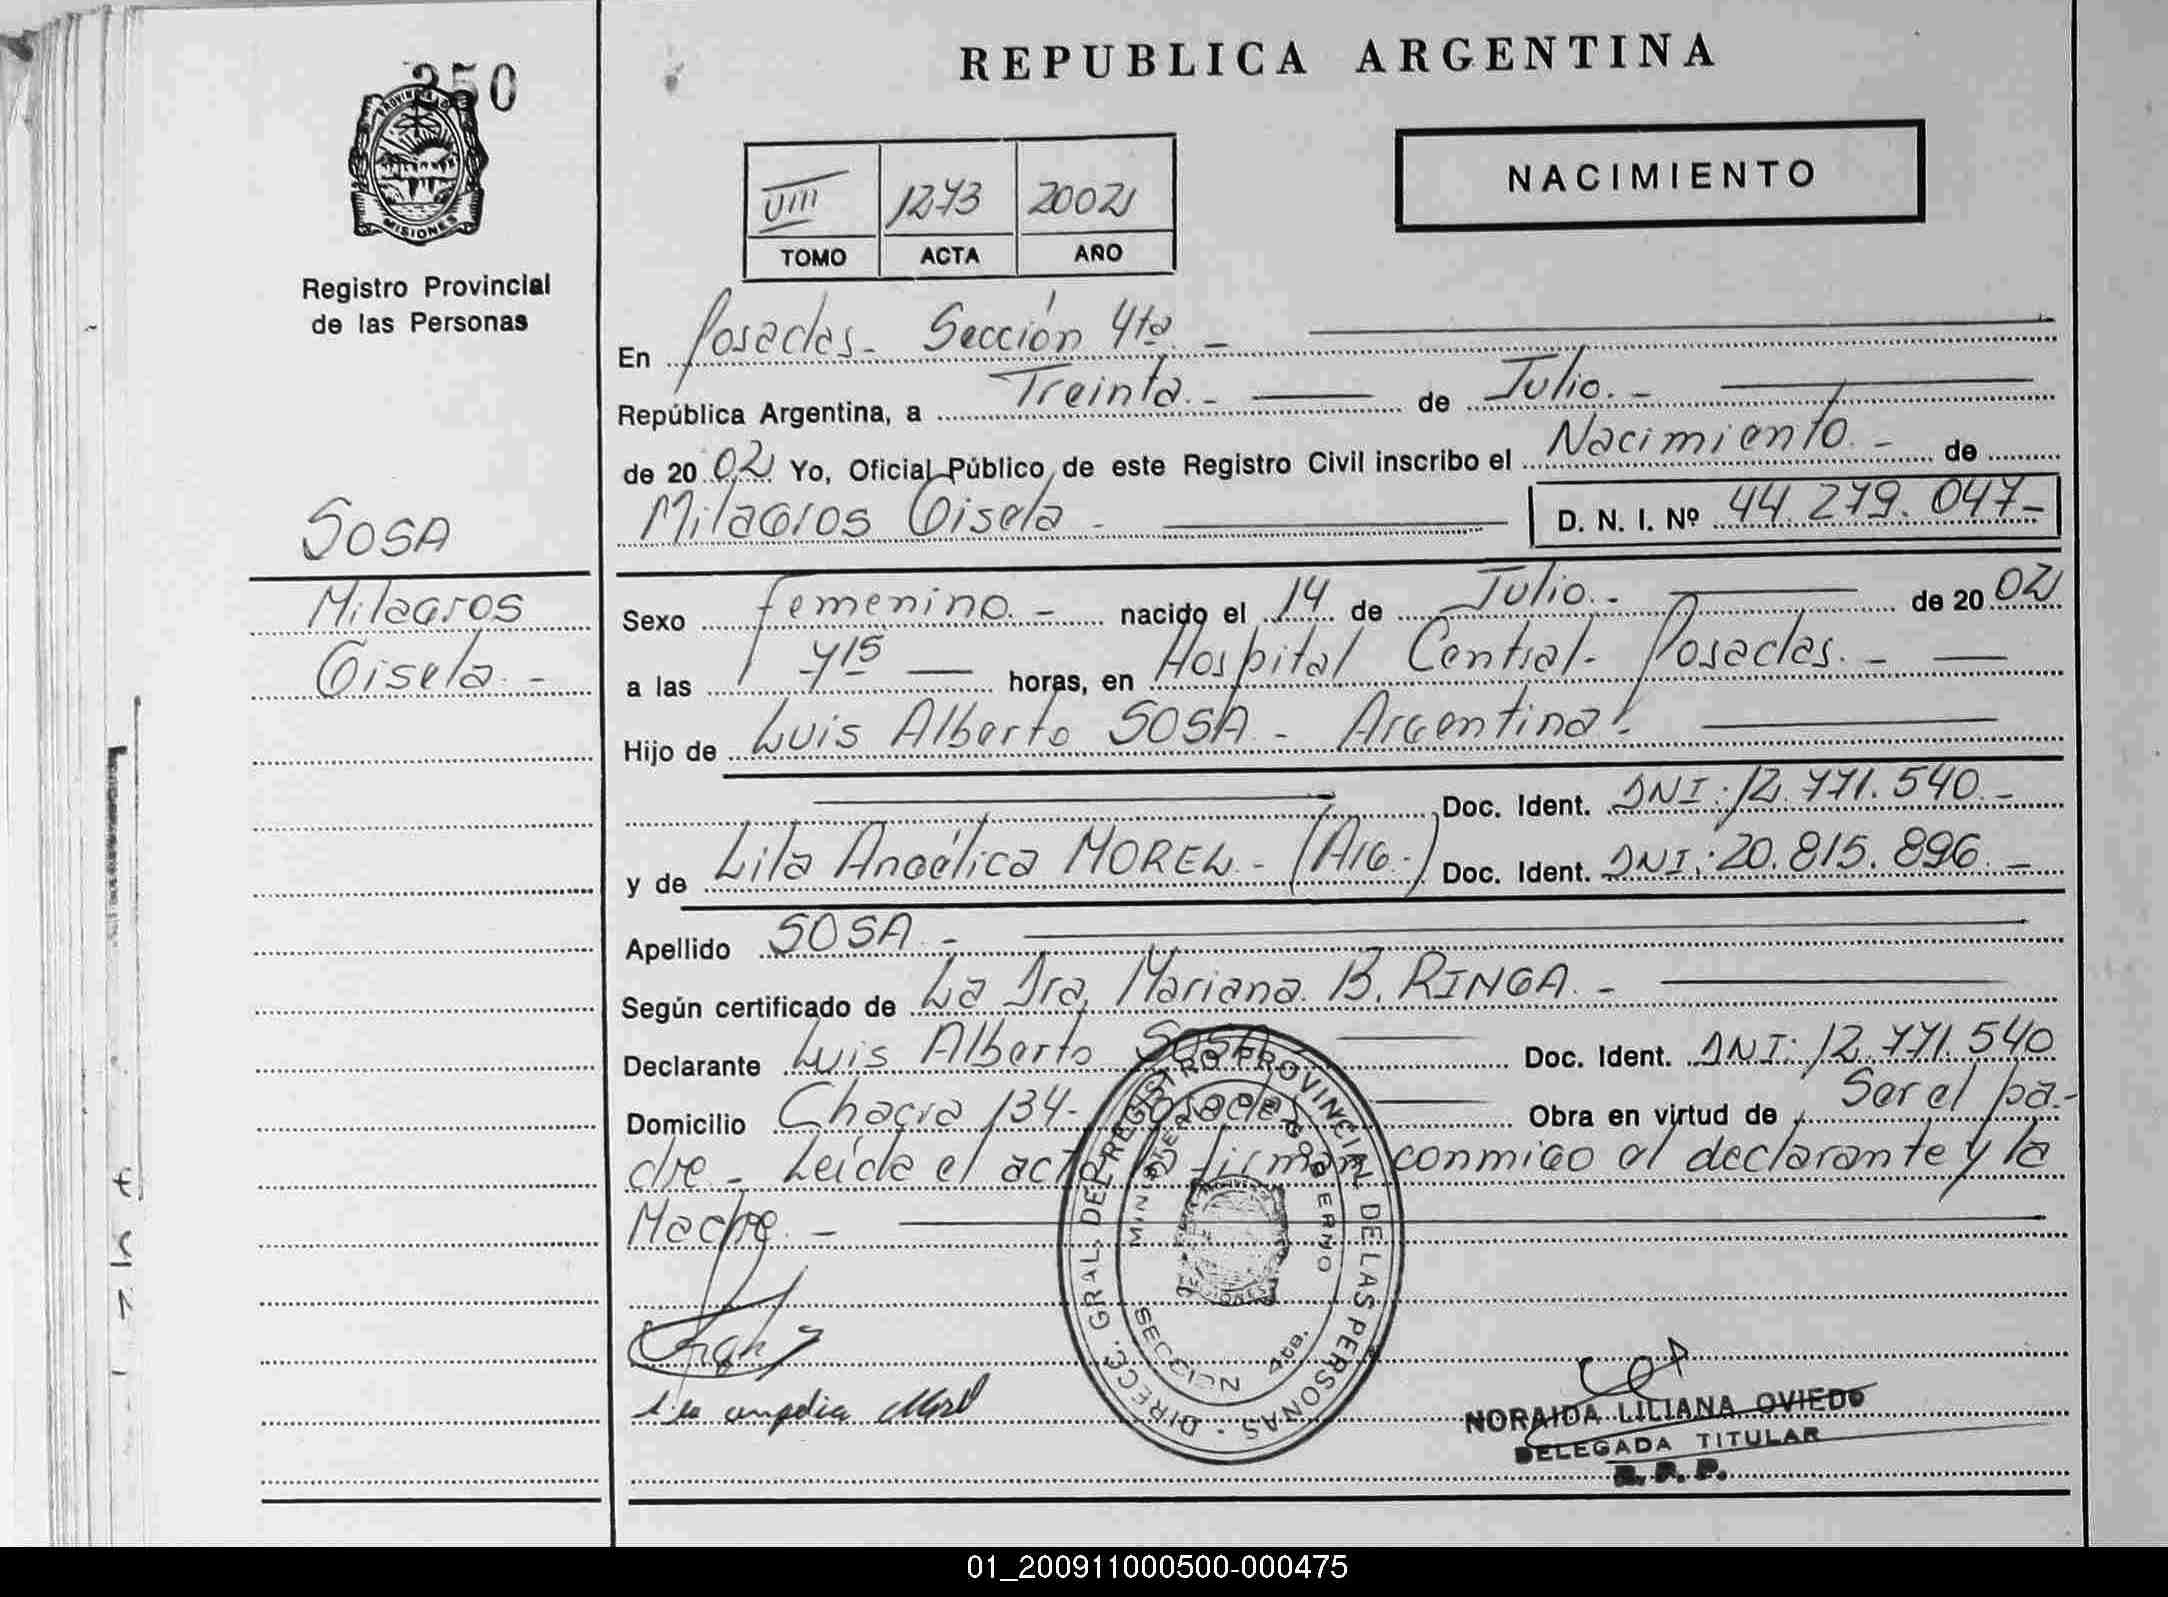 350
REPUBLICA ARGENTINA
NACIMIENTO
VIII 1273 2002
TOMO ACTA AÑO
PROVINCIA DE MISIONES
Registro Provincial
de las Personas
En Posadas - Sección 4ta. -
República Argentina, a Treinta. - de Julio. -
de 20 02 Yo, Oficial Público de este Registro Civil inscribo el Nacimiento. - de
Milagros Gisela - D. N. I. Nº 44.279.047-
SOSA
Milagros
Gisela. -
Sexo femenino. - nacido el 14 de Julio. - de 20 02
a las 7 y 15 horas, en Hospital Central - Posadas. -
Hijo de Luis Alberto SOSA - Argentina. -
Doc. Ident. DNI: 12.771.540. -
y de Lila Angélica MOREL - (Arg.) Doc. Ident. DNI: 20.815.896. -
Apellido SOSA. -
Según certificado de La Dra. Mariana B. RINGA. -
Declarante Luis Alberto SOSA - Doc. Ident. DNI: 12.771.540
Domicilio Chacra 134 - Posadas Obra en virtud de Ser el pa-
dre - Leída el acta la firman conmigo el declarante y la
Madre. -
DIRECC. GRAL. DEL REGISTRO PROVINCIAL DE LAS PERSONAS
MINISTERIO DE GOBIERNO
SECCION 4ta.
NORAIDA LILIANA OVIEDO
DELEGADA TITULAR
R. P. P.
01_200911000500-000475